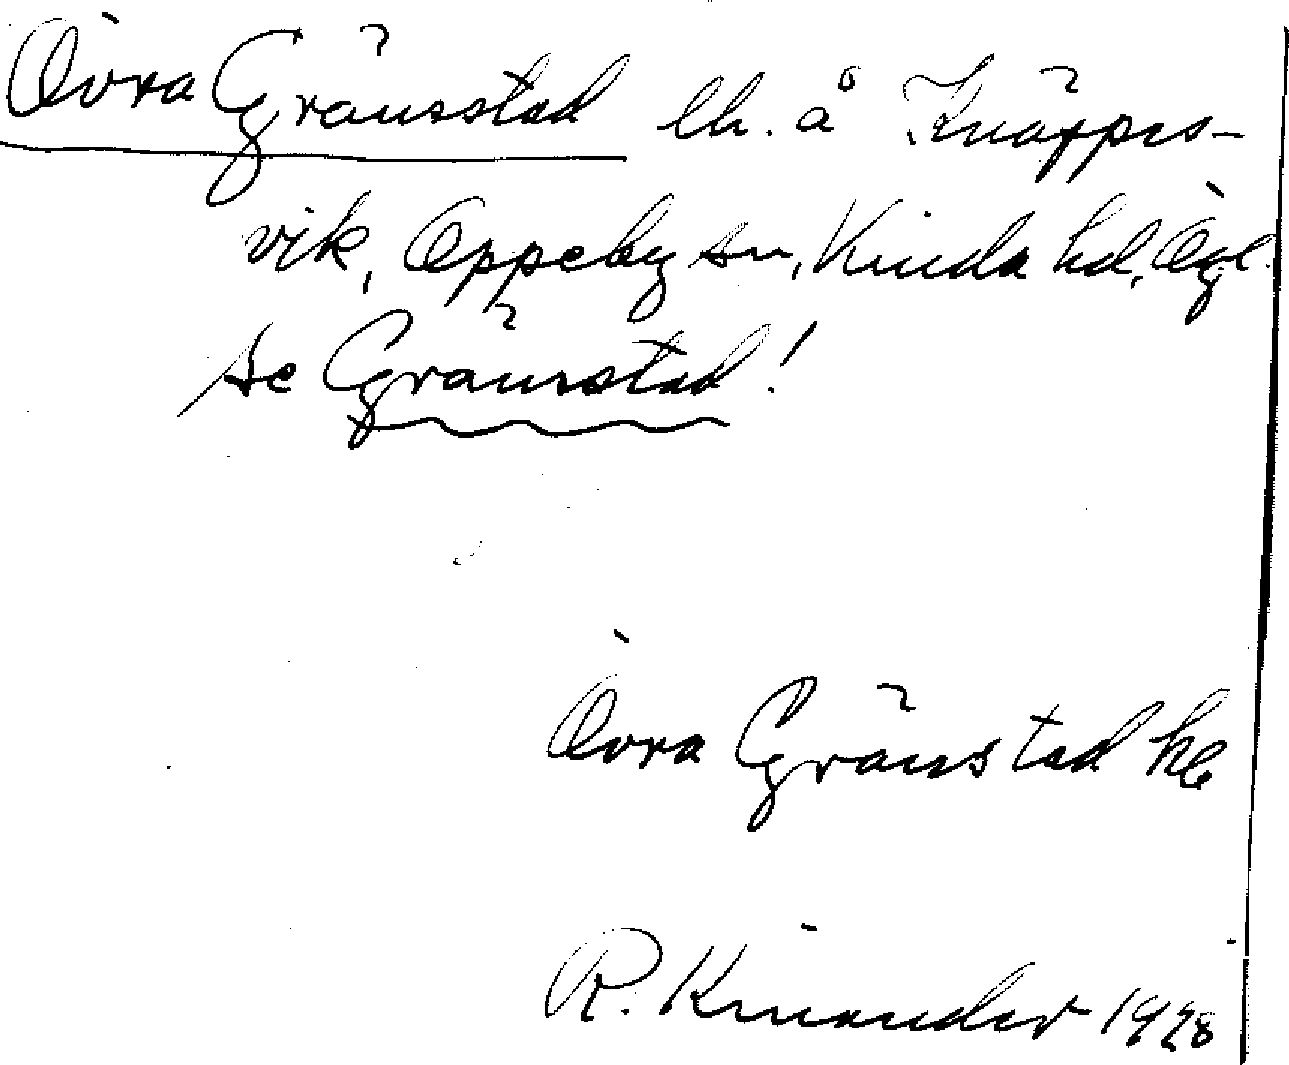 Övra Gränsstad lh. å Knäpps-
vik, Oppeby sn, Kinda hd, Ögl.
se Gränsstad!
Övra Gränstad
R. Kinander 1928